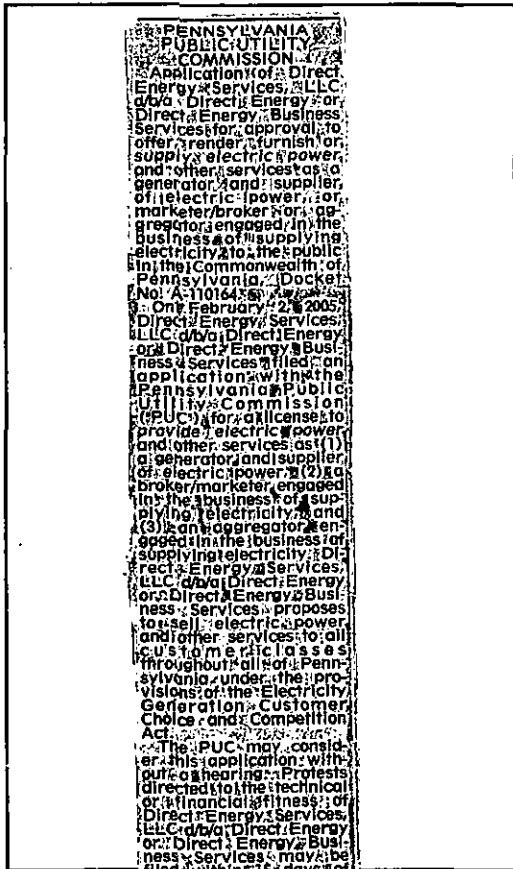 PENNSYLVANIA
PUBLIC UTILITY
COMMISSION
Application of Direct
Energy Services, LLC
d/b/a Direct Energy or
Direct Energy Business
Services for approval to
offer, render, furnish or
supply electric power
and other services as a
generator and supplier
of electric power, or
marketer/broker or ag-
gregator engaged in the
business of supplying
electricity to the public
in the Commonwealth of
Pennsylvania, Docket
No. A-110164
On February 2, 2005,
Direct Energy Services,
LLC d/b/a Direct Energy
or Direct Energy Busi-
ness Services filed an
application with the
Pennsylvania Public
Utility Commission
("PUC") for a license to
provide electric power
and other services as (1)
a generator and supplier
of electric power, (2) a
broker/marketer engaged
in the business of sup-
plying electricity, and
(3) an aggregator en-
gaged in the business of
supplying electricity. Di-
rect Energy Services,
LLC d/b/a Direct Energy
or Direct Energy Busi-
ness Services proposes
to sell electric power
and other services to all
customer classes
throughout all of Penn-
sylvania under the pro-
visions of the Electricity
Generation Customer
Choice and Competition
Act.
The PUC may consid-
er this application with-
out a hearing. Protests
directed to the technical
or financial fitness of
Direct Energy Services,
LLC d/b/a Direct Energy
or Direct Energy Busi-
ness Services may be